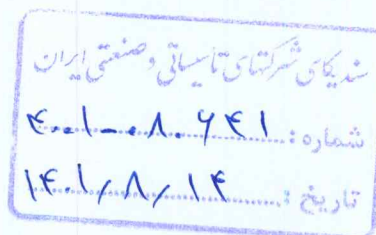 سندیکای شرکتهای تأسیساتی و صنعتی ایران
شماره: ۴۰۱-۰۸.۶۴۱
تاریخ: ۱۴۰۱/۸/۱۴